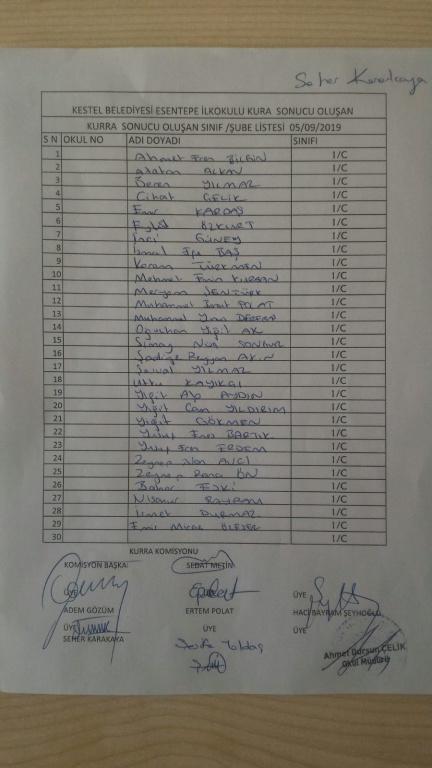 Seher Karakaya
KESTEL BELEDİYESİ ESENTEPE İLKOKULU KURA SONUCU OLUŞAN
KURRA SONUCU OLUŞAN SINIF /ŞUBE LİSTESİ 05/09/2019
S N OKUL NO ADI DOYADI SINIFI
1 Ahmet Eren BİLGİN 1/C
2 ALKAN 1/C
3 Beren YILMAZ 1/C
4 Cihat ÇELİK 1/C
5 Emir KARDAŞ 1/C
6 Eylül ÖZKURT 1/C
7 GÜNEY 1/C
8 İsmail Efe BAŞ 1/C
9 Kerem TÜRKMEN 1/C
10 Mehmet Emin 1/C
11 Meryem ŞENTÜRK 1/C
12 Muhammet POLAT 1/C
13 Muhammet 1/C
14 Oğuzhan Yiğit AK 1/C
15 Simay Nur 1/C
16 Sadiye Reyyan AKIN 1/C
17 YILMAZ 1/C
18 Utku KAYIKÇI 1/C
19 Yiğit Alp AYDIN 1/C
20 Yiğit Can YILDIRIM 1/C
21 Yiğit GÖKMEN 1/C
22 Yusuf Enes BARTIK 1/C
23 Yusuf Eren ERDEM 1/C
24 Zeynep AVCI 1/C
25 Zeynep Rana ÖN 1/C
26 Bahar 1/C
27 Nisanur BAYRAM 1/C
28 İsmet DURMAZ 1/C
29 Emir Miraç 1/C
30 1/C
KURRA KOMİSYONU
KOMİSYON BAŞKA: SEBAT METİN ÜYE
ADEM GÖZÜM ERTEM POLAT HACI BAYRAM ŞEYHOĞLU
ÜYE ÜYE ÜYE
SEHER KARAKAYA
Yoldaş
Ahmet Dursun ÇELİK
Okul Müdürü